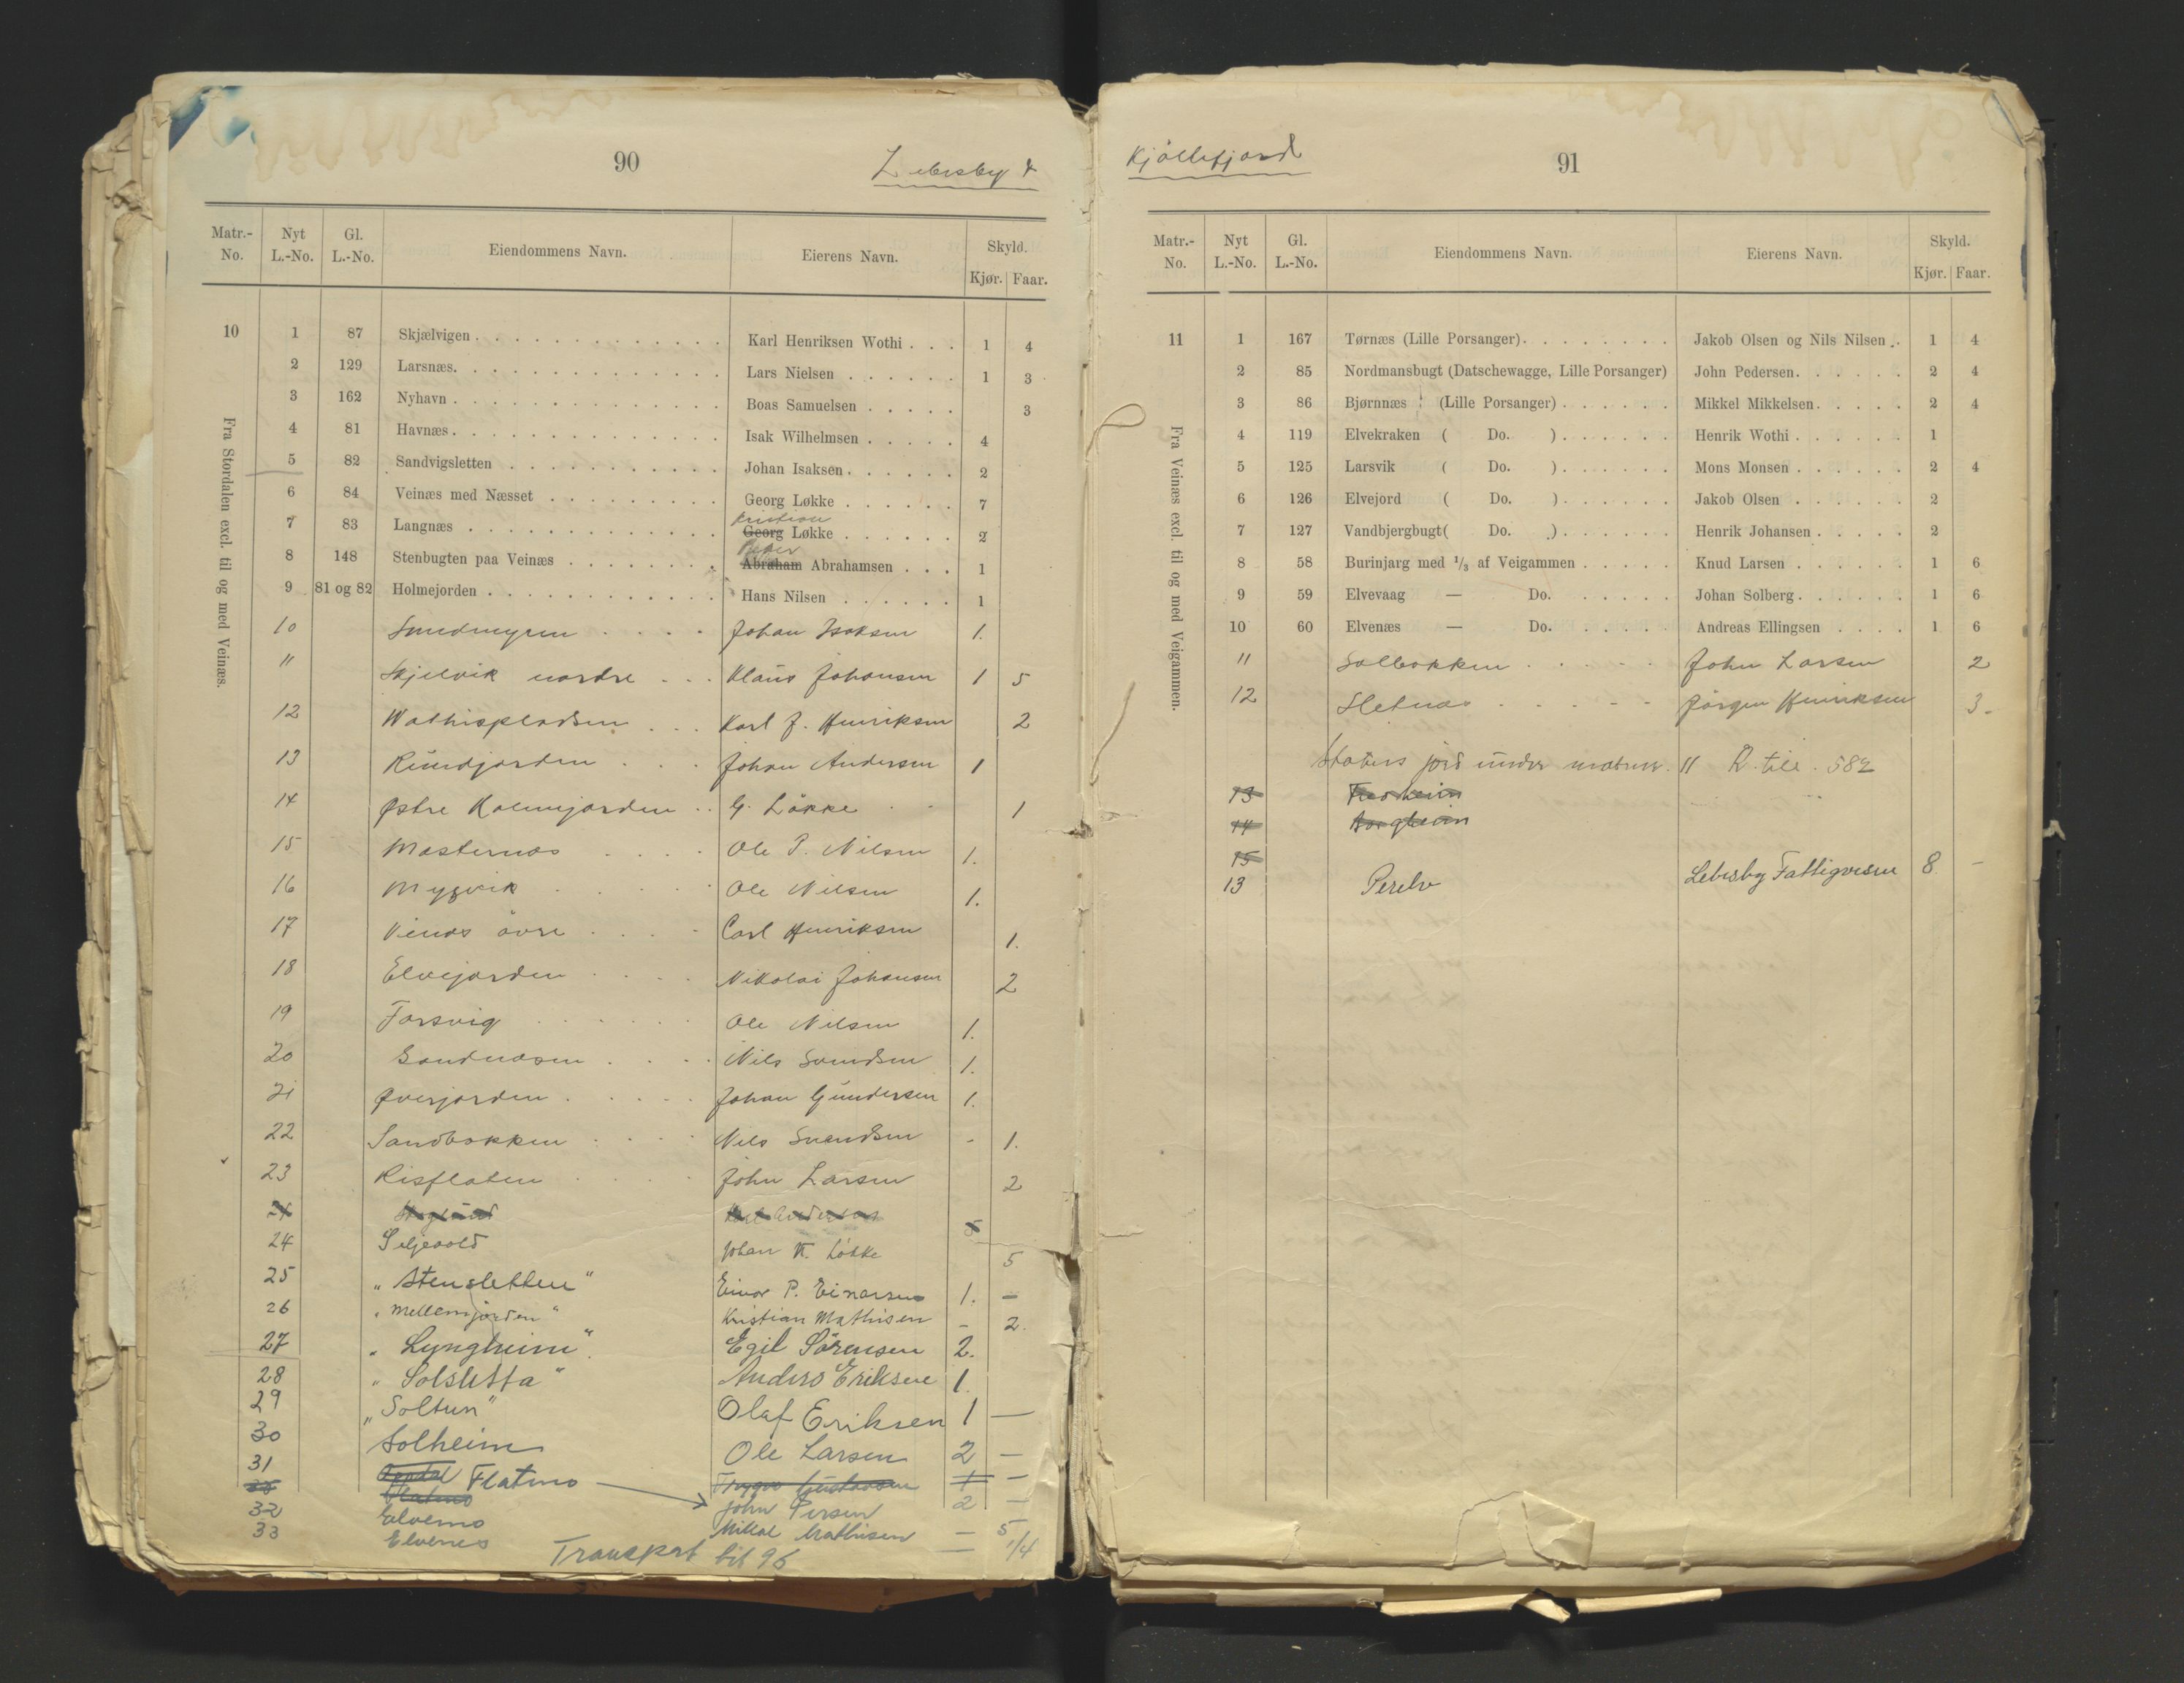 90
Lebesby &
Matr.-No. Nyt L.-No. Gl. L.-No. Eiendommens Navn. Eierens Navn. Skyld. Kjør. Faar.
Fra Stordalen excl. til og med Veinæs.
10 1 87 Skjælvigen . . . Karl Henriksen Wothi . . . 1 4
2 129 Larsnæs. . . . Lars Nielsen . . . 1 3
3 162 Nyhavn . . . Boas Samuelsen . . . 3
4 81 Havnæs . . . Isak Wilhelmsen . . . 4
5 82 Sandvigsletten . . . Johan Isaksen . . . 2
6 84 Veinæs med Næsset . . . Georg Løkke . . . 7
Kristian
7 83 Langnæs . . . Georg Løkke . . . 2
Peder
8 148 Stenbugten paa Veinæs . . . Abraham Abrahamsen . . . 1
9 81 og 82 Holmejorden . . . Hans Nilsen . . . 1
10 Smedmyren . . . Johan Isaksen 1.
11 Skjelvik nordre . . . Klaus Johansen 1 5
12 Wathispladsen . . . Karl J. Henriksen 2
13 Rundjorden . . . Johan Andersen 1
14 Østre Holmejorden . . G. Løkke . . 1
15 Masternæs . . . Ole P. Nilsen 1.
16 Mygvik . . . Ole Nilsen 1.
17 Veinæs övre . . . Carl Henriksen 1.
18 Elvejorden . . . Nikolai Johansen 2
19 Torsvig . . . Ole Nilsen 1.
20 Sandnæsen . . . Nils Svendsen 1.
21 Øverjorden . . . Johan Gundersen 1.
22 Sandbakken . . . Nils Svendsen - 1.
23 Risflaten . . . John Larsen 2
24 5
24 Seljevold Johan K. Løkke 5
25 "Stensletten" Einar P. Einarsen 1. -
26 "Mellemjorden" Kristian Mathisen - 2.
27 "Lyngheim". Egil Sørensen 2.
28 "Solsletta" Anders Eriksen 1.
29 "Soltun" Olaf Eriksen 1 —
30 Solheim Ole Larsen 2 —
31 Flatmo Trygve Gustavsen 1 —
Flatmo John Persen 2 —
32 Elvemo Mikal Mathisen — 5
33 Elvenes — 1/4
Transport til 96
Kjöllefjord
91
Matr.-No. Nyt L.-No. Gl. L.-No. Eiendommens Navn. Eierens Navn. Skyld. Kjør. Faar.
Fra Veinæs excl. til og med Veigammen.
11 1 167 Tørnæs (Lille Porsanger). . . . Jakob Olsen og Nils Nilsen . . 1 4
2 85 Nordmansbugt (Datschewagge, Lille Porsanger) John Pedersen. . . . 2 4
3 86 Bjørnnæs (Lille Porsanger) . . . Mikkel Mikkelsen. . . . 2 4
4 119 Elvekraken ( Do. ) . . . Henrik Wothi . . . 1
5 125 Larsvik ( Do. ) . . . Mons Monsen . . . 2 4
6 126 Elvejord ( Do. ) . . . Jakob Olsen . . . 2
7 127 Vandbjergbugt( Do. ) . . . Henrik Johansen . . . 2
8 58 Burinjarg med 1/3 af Veigammen . . . Knud Larsen . . . 1 6
9 59 Elvevaag — Do. . . . Johan Solberg . . . 1 6
10 60 Elvenæs — Do. . . . Andreas Ellingsen . . . 1 6
11 Solbakken . . . John Larsen 2
12 Sletnæs . . . Jørgen Henriksen 3-
Statens jord under matrnr. 11 R. till. 582
13 Fredheim
14 Borgheim
15
13 Perelv Lebesby Fattigvesen 8 -